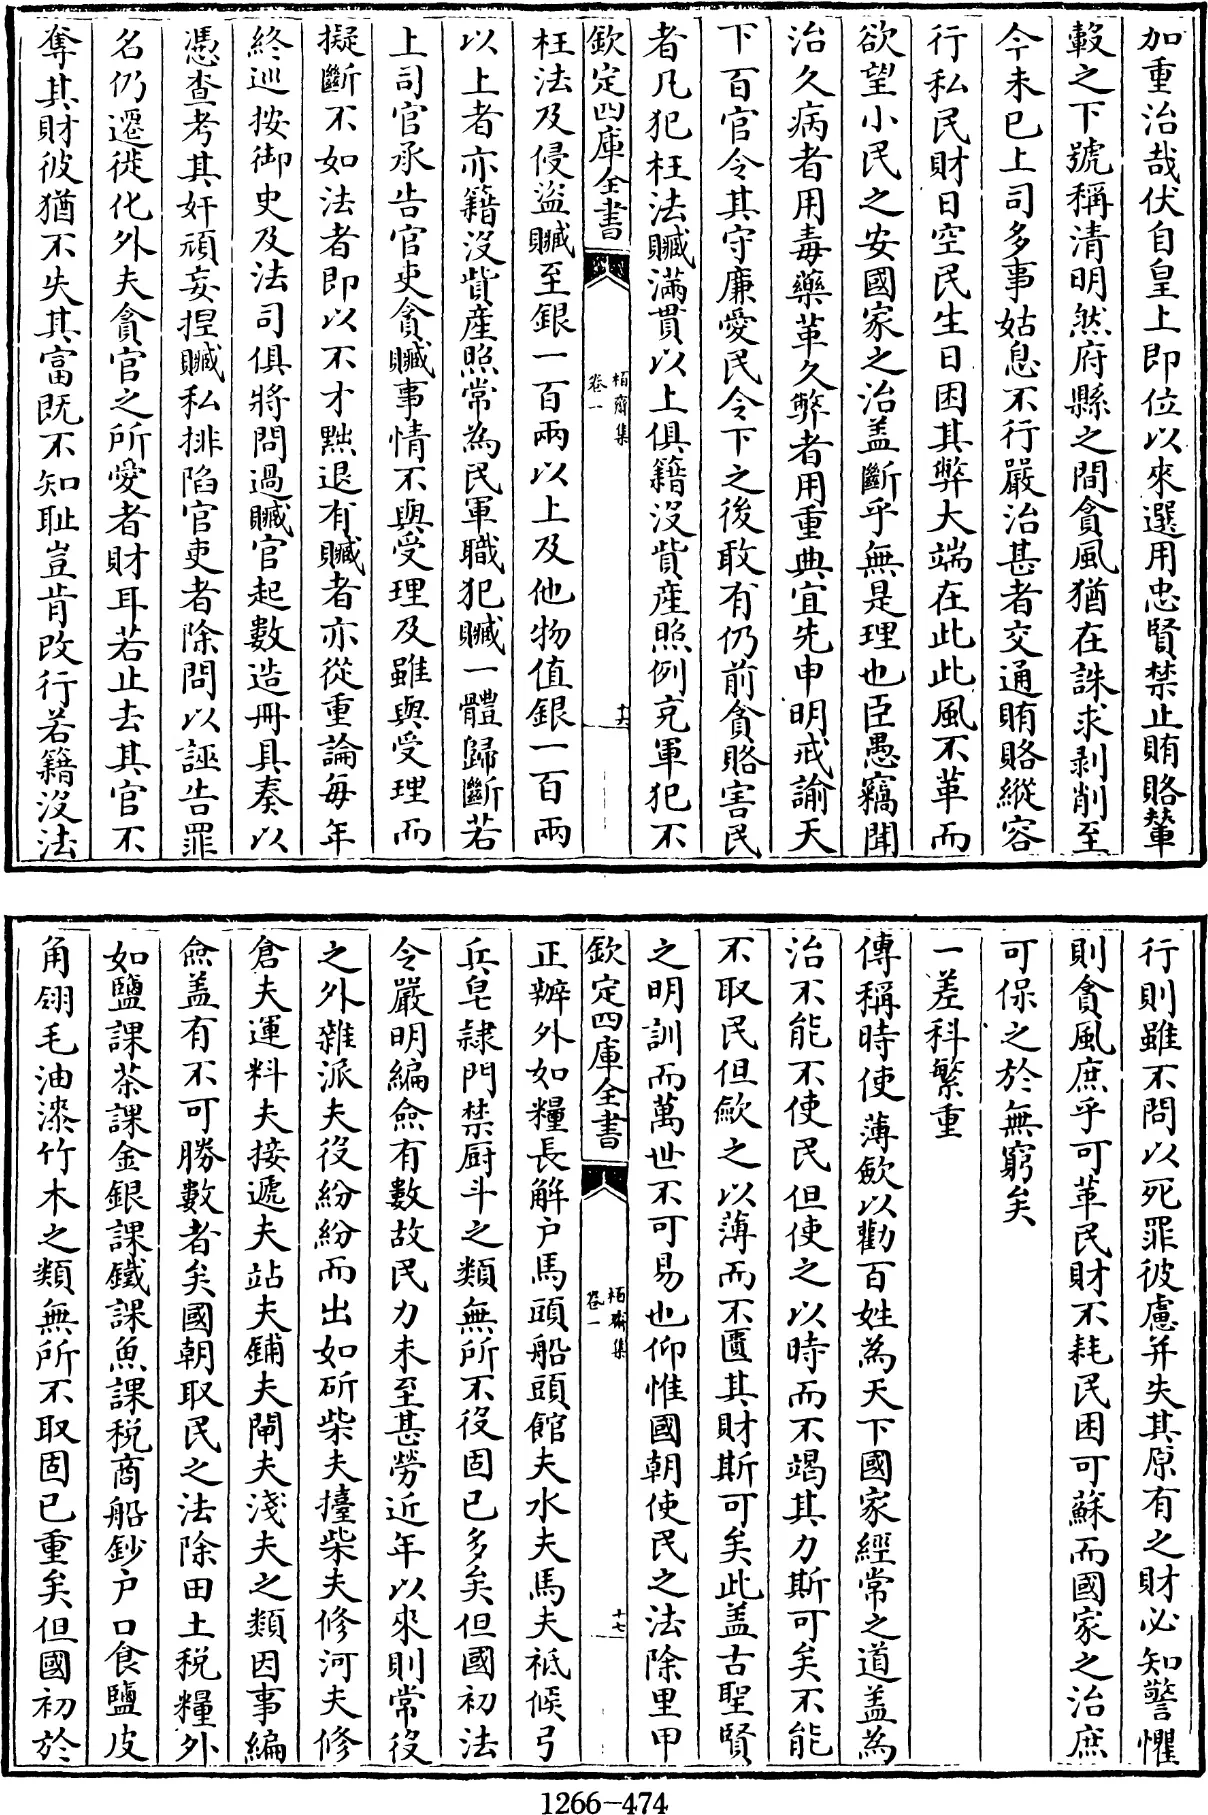 加重治哉伏自皇上即位以來選用忠賢禁止賄賂輦
轂之下號稱清明然府縣之間貪風猶在誅求剥削至
今未已上司多事姑息不行嚴治甚者交通賄賂縱容
行私民財日空民生日困其弊大端在此此風不革而
欲望小民之安國家之治盖斷乎無是理也臣愚竊聞
治久病者用毒藥革久弊者用重典宜先申明戒諭天
下百官令其守廉愛民令下之後敢有仍前貪賂害民
者凡犯枉法贓滿貫以上俱籍沒貲産照例充軍犯不
欽定四庫全書
栢齋集
卷一
十六
枉法及侵盗贓至銀一百兩以上及他物值銀一百兩
以上者亦籍沒貲産照常為民軍職犯贓一體歸斷若
上司官承告官吏貪贓事情不與受理及雖與受理而
擬斷不如法者即以不才黜退有贓者亦從重論每年
終巡按御史及法司俱將問過贓官起數造册具奏以
憑查考其奸頑妄捏贓私排陷官吏者除問以誣告罪
名仍遷徙化外夫貪官之所愛者財耳若止去其官不
奪其財彼猶不失其富既不知耻豈肯改行若籍沒法
行則雖不問以死罪彼慮并失其原有之財必知警懼
則貪風庶乎可革民財不耗民困可蘇而國家之治庶
可保之於無窮矣
一差科繁重
傳稱時使薄斂以勸百姓為天下國家經常之道盖為
治不能不使民但使之以時而不竭其力斯可矣不能
不取民但歛之以薄而不匱其財斯可矣此盖古聖賢
之明訓而萬世不可易也仰惟國朝使民之法除里甲
欽定四庫全書
栢齋集
卷一
十七
正辦外如糧長解户馬頭船頭館夫水夫馬夫祇候弓
兵皂隸門禁厨斗之類無所不役固已多矣但國初法
令嚴明編僉有數故民力未至甚勞近年以來則常役
之外雜派夫役紛紛而出如斫柴夫擡柴夫修河夫修
倉夫運料夫接遞夫站夫鋪夫閘夫淺夫之類因事編
僉盖有不可勝數者矣國朝取民之法除田土税糧外
如鹽課茶課金銀課鐵課魚課税商船鈔户口食鹽皮
角翎毛油漆竹木之類無所不取固已重矣但國初於
1266-474